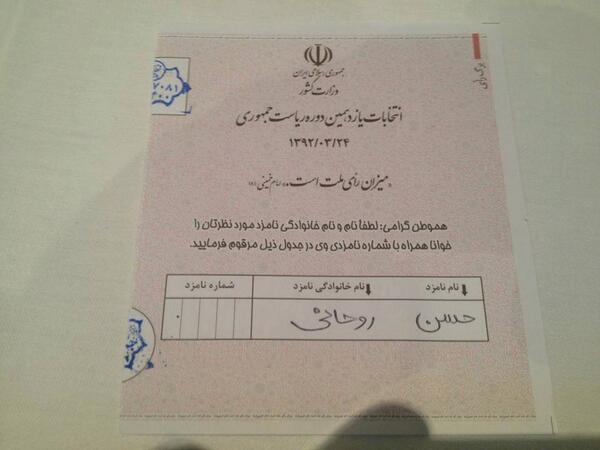 برگ رأی
جمهوری اسلامی ایران
وزارت کشور
انتخابات یازدهمین دوره ریاست جمهوری
۱۳۹۲/۰۳/۲۴
«میزان رأی ملت است» امام خمینی (ره)
هموطن گرامی: لطفاً نام و نام خانوادگی نامزد مورد نظرتان را
خوانا همراه با شماره نامزدی وی در جدول ذیل مرقوم فرمایید.
نام نامزد نام خانوادگی نامزد شماره نامزد
حسن روحانی